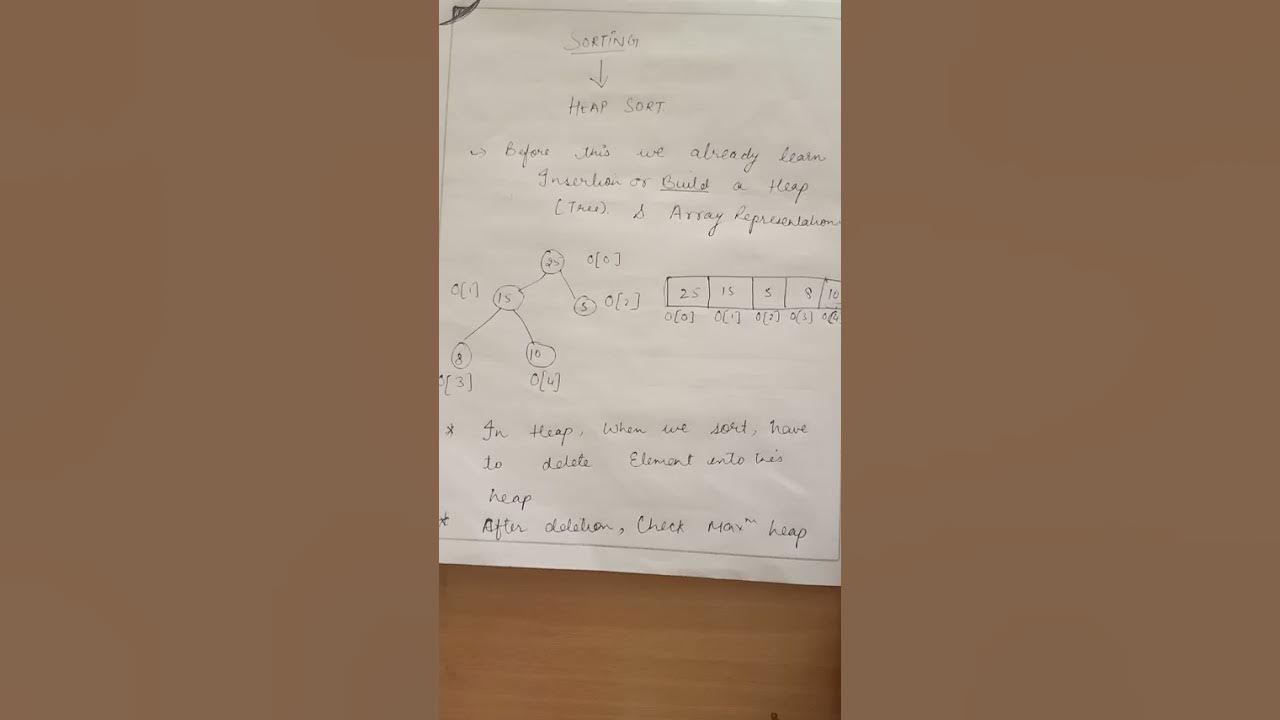 SORTING
HEAP SORT
Before this we already learn
Insertion or Build a Heap
(Tree) & Array Representation
25 0[0]
0[1] 15 5 0[2]
25 15 5 8 10
0[0] 0[1] 0[2] 0[3] 0[4
8 10
0[3] 0[4]
* In Heap, When we sort, have
to delete Element into his
heap
* After deletion, Check Maxm heap